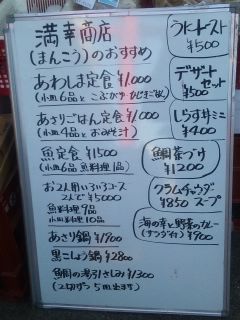 満幸商店
(まんこう)のおすすめ
あわしま定食 ¥1,000
(小皿6品と
あさりごはん定食 ¥1,000
(小皿4品とおみそ汁)
魚定食 ¥1500
(小皿6品 魚料理1品)
お2人用いろいろコース
2人で¥5000
魚料理9品
小皿料理10品
あさり鍋 ¥1900
黒こしょう鍋 ¥2800
鯛の湯引さしみ ¥1300
(2切ずつ5皿出ます)
うにトースト
¥500
デザート
セット
¥500
しらす丼ミニ
¥400
鯛茶づけ
¥1200
クラムチャウダー
¥850 スープ
海の幸と野菜のカレー
(サラダ付) ¥900